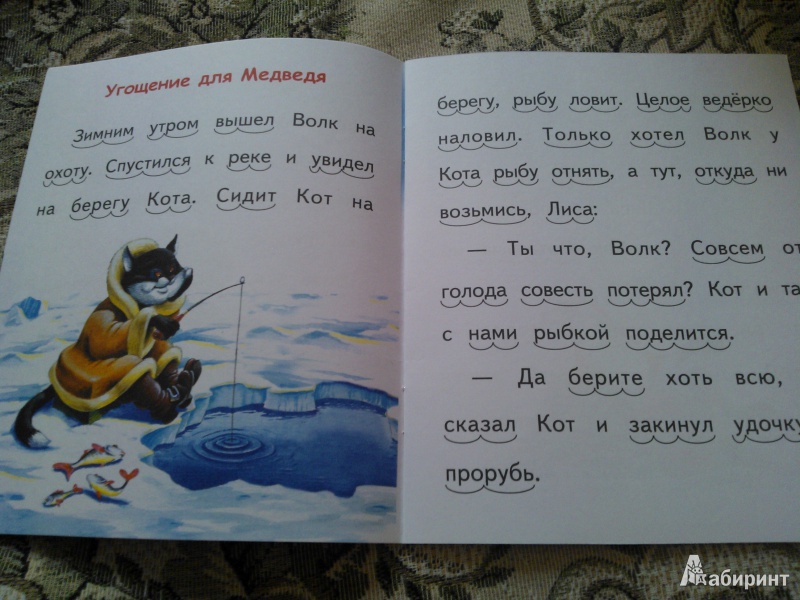 Угощение для Медведя
Зимним утром вышел Волк на
охоту. Спустился к реке и увидел
на берегу Кота. Сидит Кот на
берегу, рыбу ловит. Целое ведёрко
наловил. Только хотел Волк у
Кота рыбу отнять, а тут, откуда ни
возьмись, Лиса:
— Ты что, Волк? Совсем от
голода совесть потерял? Кот и та
с нами рыбкой поделится.
— Да берите хоть всю,
сказал Кот и закинул удочку
прорубь.
Лабиринт